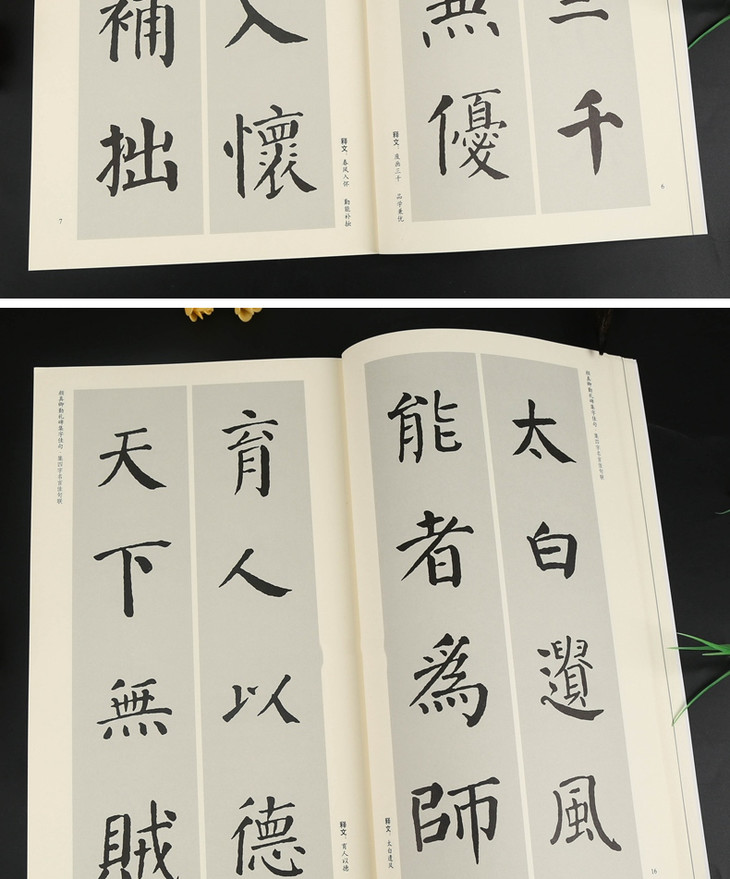 三千
兼優
释文:
三千 品学兼优
6
入懷
補拙
释文:春风入怀 勤能补拙
7
颜真卿勤礼碑集字佳句·集四字名言佳句联
太白遺風
能者爲師
释文:太白遗风
16
育人以德
天下無賊
释文:育人以德
颜真卿勤礼碑集字佳句·集四字名言佳句联